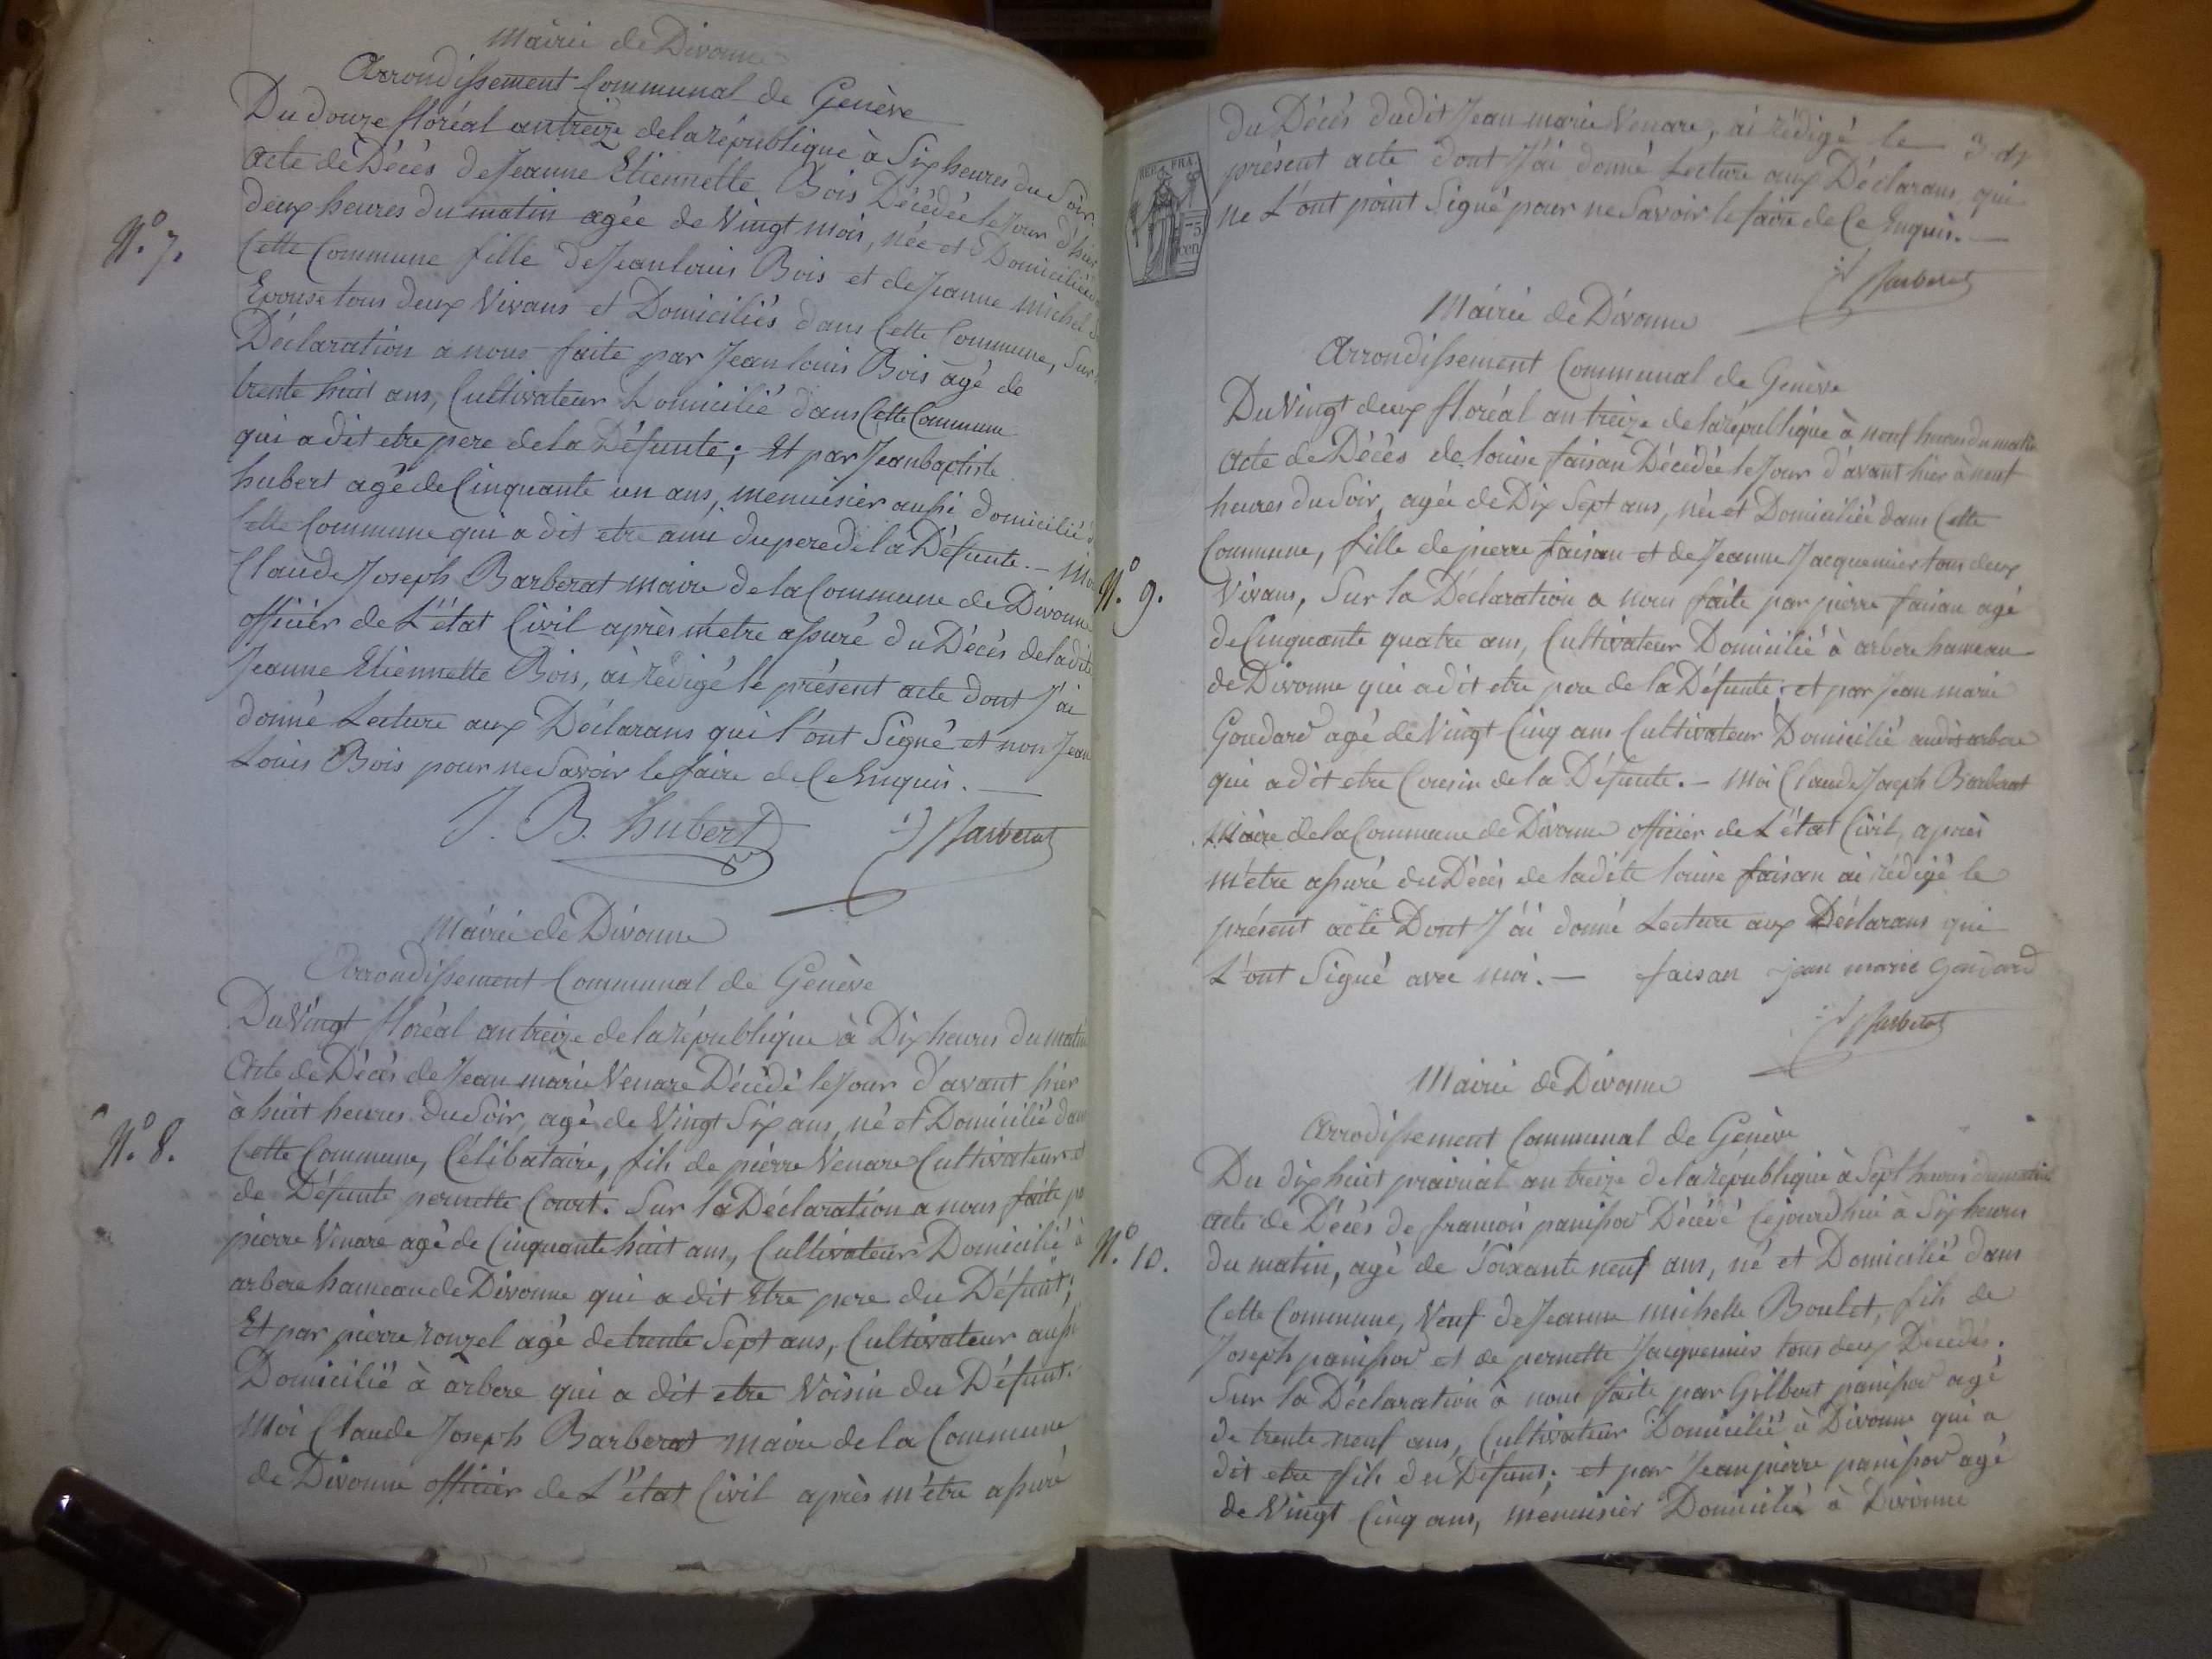 Mairie de Divonne
Arrondissement Communal de Genève
Du douze floréal an treize de la république à Six heures du Soir
N.o 7.
acte de Décés de Jeanne Etiennette Bois Décédée le Jour d'hier
deux heures du matin agée de Vingt mois, née et Domiciliée
Cette Commune fille de Jean louis Bois et de Jeanne Michel
Epouse tous deux Vivans et Domiciliés dans Cette Commune, Sur
Déclaration a nous faite par Jean louis Bois agé de
trente huit ans, Cultivateur Domicilié dans Cette Commune
qui a dit etre pere de la Défunte; Et par Jean baptiste
hubert agé de Cinquante un ans, menuisier aussi domicilié
Cette Commune qui a dit etre ami du pere de la Défunte. – Moi
Claude Joseph Barberat maire de la Commune de Divonne
officier de L'état Civil après m'etre assuré du Décés de ladite
Jeanne Etiennette Bois, ai rédigé le présent acte dont J'ai
donné Lecture aux Déclarans qui l'ont Signé et non Jean
Louis Bois pour ne Savoir le faire de Ce Enquis. —
J. B. hubert Barberat
Mairie de Divonne
Arrondissement Communal de Genève
Du Vingt floréal an treize de la république à Dix heures du matin
Acte de Décés de Jean marie Venare Décédé le Jour d'avant hier
N.o 8.
à huit heures du Soir, agé de Vingt Six ans, né et Domicilié dans
Cette Commune, Célibataire, fils de pierre Venare Cultivateur et
de Défunte pernette Court. Sur la Déclaration a nous faite
pierre Venare agé de Cinquante huit ans, Cultivateur Domicilié à
arbere hameau de Divonne qui a dit Etre pere du Défunt;
Et par pierre rouzel agé de trente Sept ans, Cultivateur aussi
Domicilié à arbere qui a dit etre Voisin du Défunt.
Moi Claude Joseph Barberat maire de la Commune
de Divonne officier de L'état Civil après m'etre assuré
REP. FRA.
75
cen
du Décés dudit Jean marie Venare, ai rédigé le
présent acte dont J'ai donné Lecture aux Déclarans qui
ne L'ont point Signé pour ne Savoir le faire de Ce Enquis. —
Barberat
Mairie de Divonne
Arrondissement Communal de Genève
Du Vingt deux floréal an treize de la république à neuf heures du matin
Acte de Décés de louise faisan Décédée le Jour d'avant hier à neuf
heures du Soir, agée de Dix Sept ans, née et Domiciliée dans Cette
N.o 9.
Commune, fille de pierre faisan et de Jeanne Jacquemier tous deux
Vivans, Sur la Déclaration a nous faite par pierre faisan agé
de Cinquante quatre ans, Cultivateur Domicilié à arbere hameau
de Divonne qui a dit etre pere de la Défunte; et par Jean marie
Goudard agé de Vingt Cinq ans Cultivateur Domicilié audit arbere
qui a dit etre Cousin de la Défunte. – Moi Claude Joseph Barberat
Maire de la Commune de Divonne officier de L'état Civil, après
m'etre assuré du Décés de ladite louise faisan ai rédigé le
présent acte Dont J'ai donné Lecture aux Déclarans qui
L'ont Signé avec moi. — faisan jean marie goudard
Barberat
Mairie de Divonne
Arrodissement Communal de Genève
Du dix huit prairial an treize de la république à Sept heures du matin
acte de Décés de francois panissod Décédé Cejourdhui à Six heures
N.o 10.
du matin, agé de Soixante neuf ans, né et Domicilié dans
Cette Commune, Veuf de Jeanne michelle Boulet, fils de
Joseph panissod et de pernette Jacquemier tous deux Décédés.
Sur la Déclaration à nous faite par Gilbert panissod agé
de trente neuf ans, Cultivateur Domicilié à Divonne qui a
dit etre fils du Défunt; et par Jean pierre panissod agé
de Vingt Cinq ans, menuisier Domicilié à Divonne